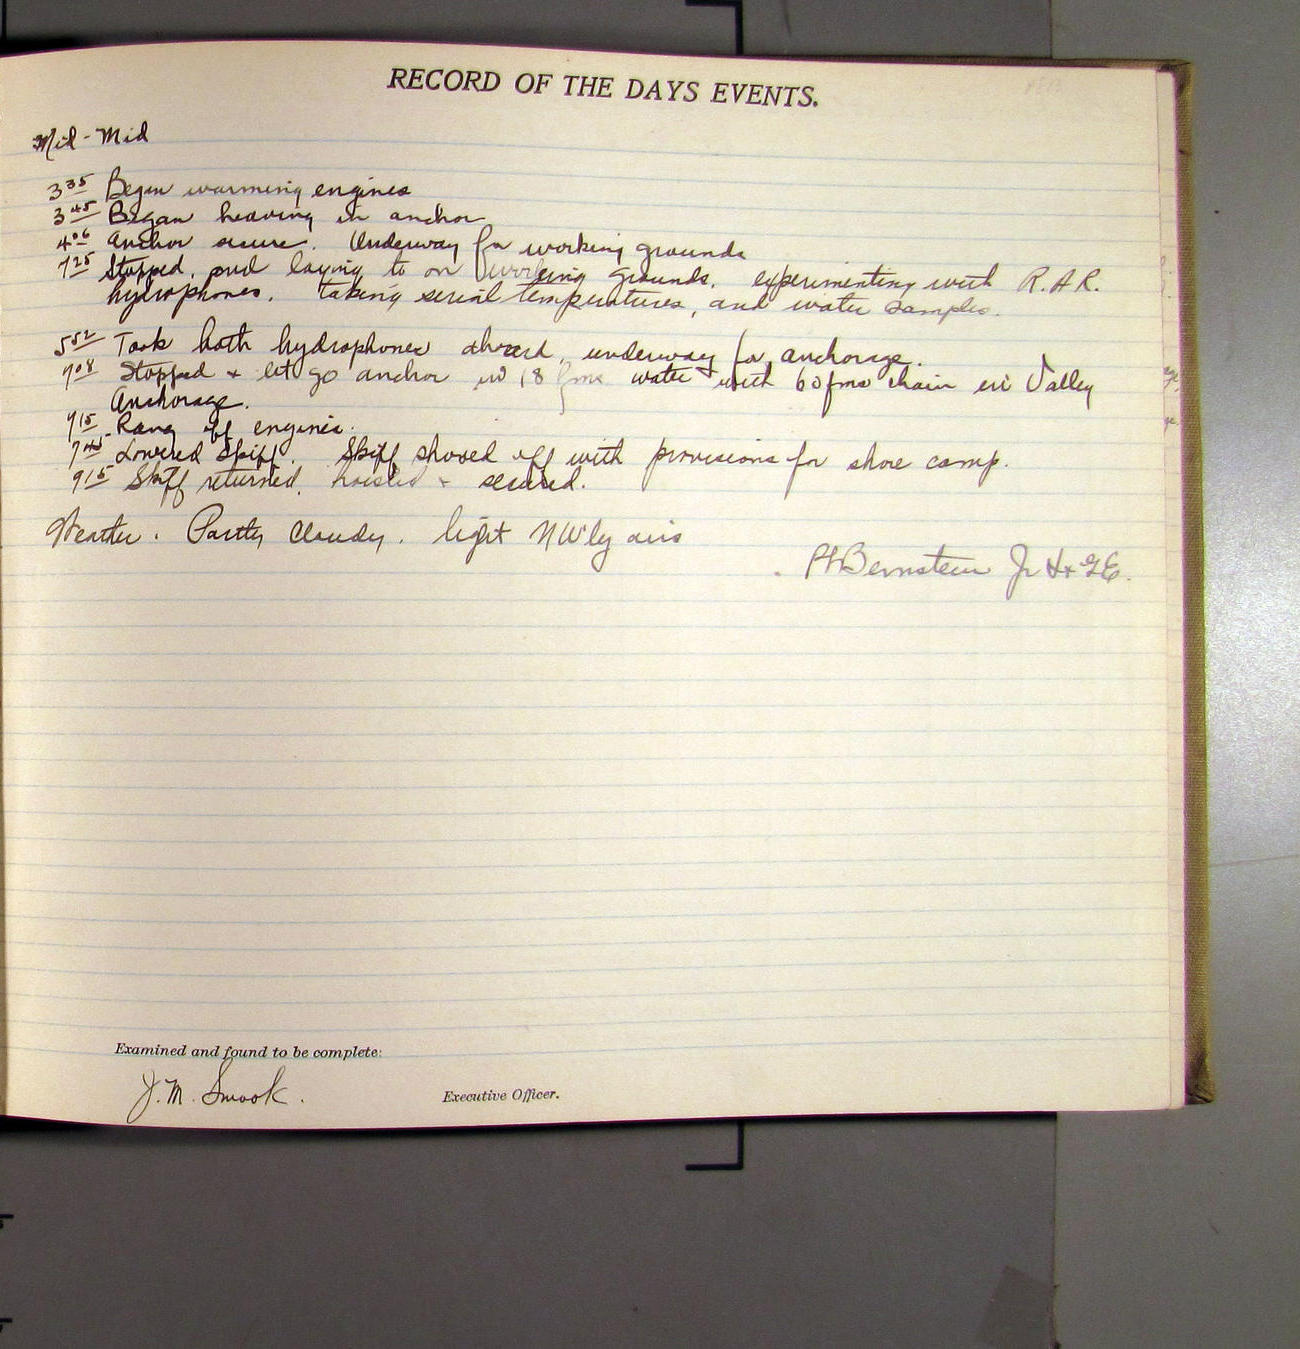 RECORD OF THE DAYS EVENTS.
Mid - Mid
3 35 Began warming engines
3 45 Began heaving in anchor
4 06 Anchor secure. Underway for working grounds
7 25 Stopped, and laying to on working grounds, experimenting with R.A.R.
hydrophones. Taking serial temperatures, and water samples.
5 52 Took both hydrophones aboard, underway for anchorage.
7 08 Stopped + let go anchor in 18 fms water with 60 fms chain in Valley
Anchorage.
7 15 Rang off engines.
7 45 Lowered Skiff. Skiff shoved off with provisions for shore camp.
9 15 Skiff returned, hoisted + secured.
Weather. Partly Cloudy. light NW'ly airs
Bernstein Jr H+GE.
Examined and found to be complete:
J. M. Smook. Executive Officer.